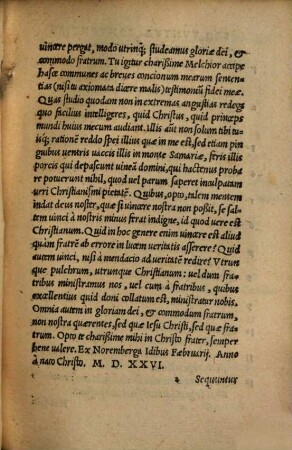 uincere pergat, modo utrinq; studeamus gloriæ dei, &
commodo fratrum. Tu igitur charißime Melchior accipe
hasce communes ac breues concionum mearum senten-
tias (nisi tu axiomata dicere malis) testimonÿ fidei meæ.
Quas studio quodam non in extremas angustias redegi,
quo facilius intelligeres, quid Christus, quid primas
mundi huius mecum audiant. illis aũt non solum tibi tu-
isq; rationẽ reddo spei illius quæ in me est, sed etiam pin
guibus uentris uaccis illis in monte Samariæ, feris illis
porcis qui depascunt uineã domini, qui hactenus proba
re potuerunt nihil, quod uel parum saperet inculpatam
ueri Christianismi pietatẽ. Quibus, opto, talem mentem
indat deus noster, quæ si uincere nostra non poßit, se sal-
tem uinci à nostris minus ferat indigne, id quod uere est
Christianum. Quid in hoc genere enim uincere est aliud
quàm fratrẽ ab errore in lucem ueritatis asserere? Quid
autem uinci, nisi à mendacio ad ueritatẽ redire? Vtrun
que pulchrum, utrunque Christianum: uel dum fratri-
bus ministramus nos, uel cum à fratribus, quibus
excellentius quid doni collatum est, ministratur nobis.
Omnia autem in gloriam dei, & commodum fratrum,
non nostra quærentes, sed quæ Iesu Christi, sed quæ fra-
trum. Opto te charißime mihi in Christo frater, semper
bene ualere. Ex Noremberga Idibus Fæbruarij. Anno
à nato Christo. M. D. XXVI.
2 Sequuntur